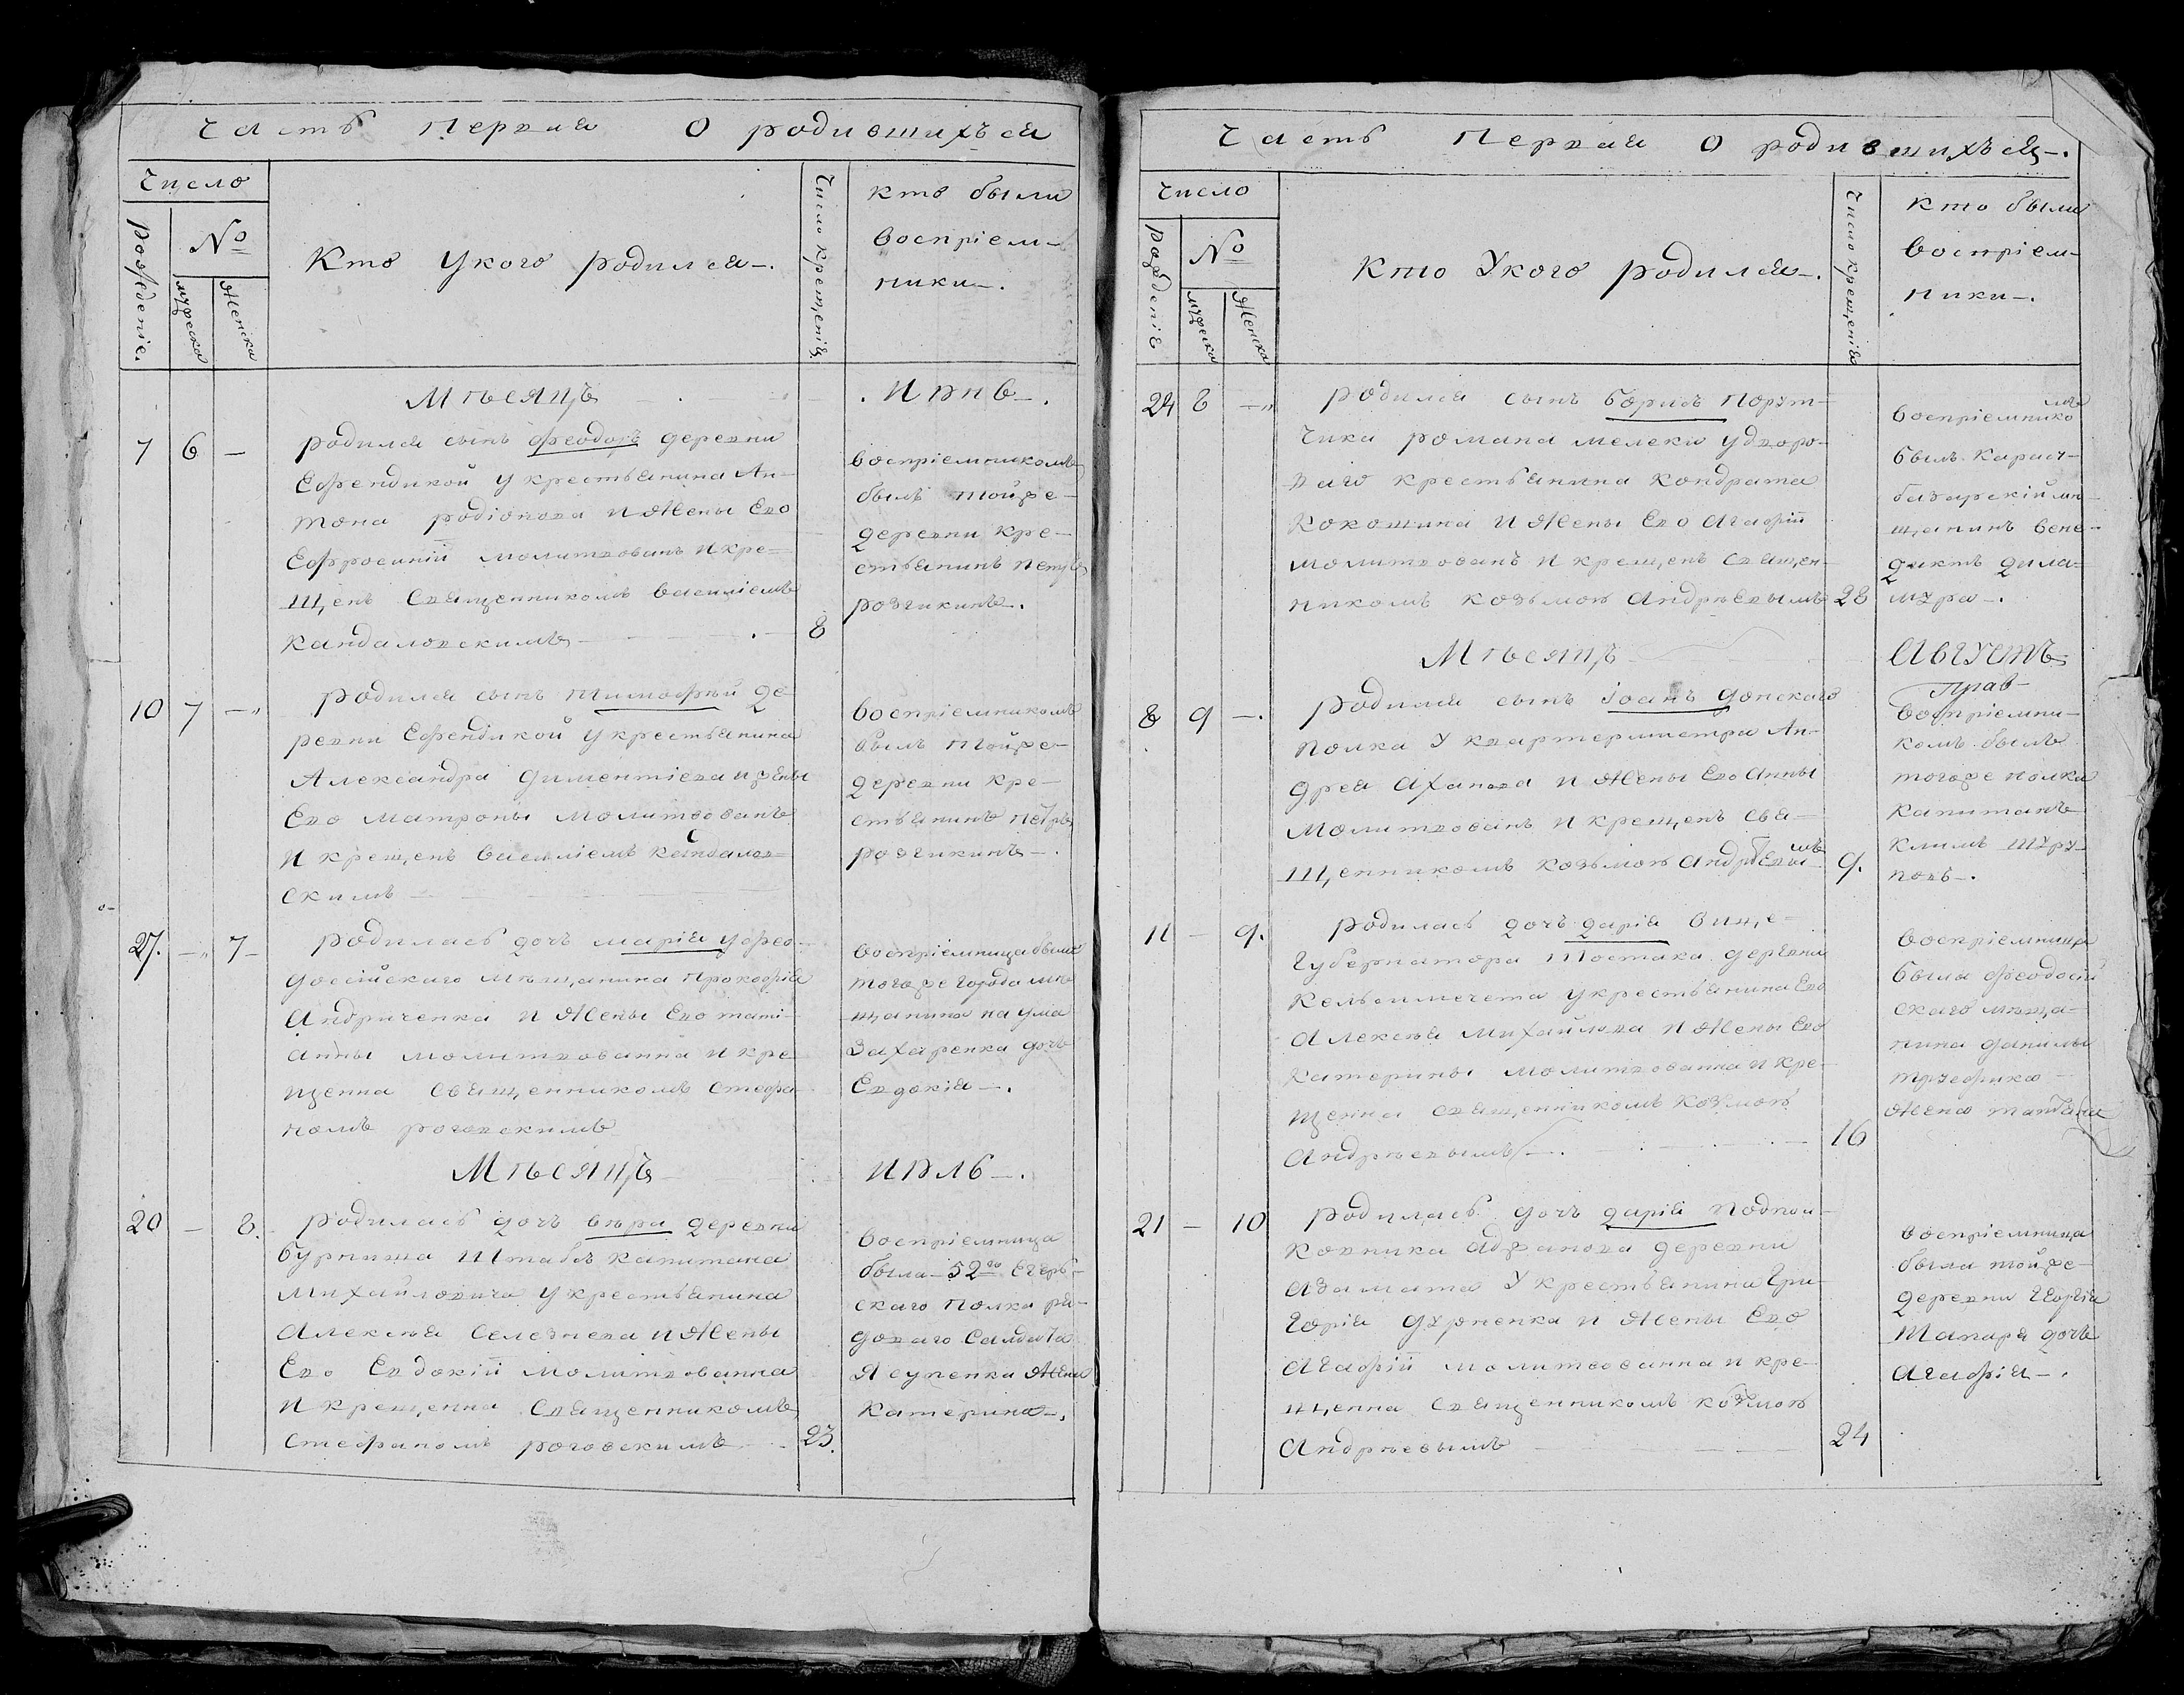 Часть Первая О родившихъся
Число
рожденіе.
№
мужеска
Женска
Кто Укого родился.
Число крещенія
кто были
воспріем-
ники.
Мѣсяцъ Июнь.
7 6 —
родился сынъ феодоръ деревни
Ефендикой у крестьянина Ан-
тона родіонова и Жены Его
Ефросиніи молитвованъ и кре-
щенъ Священникомъ василіемъ
кандаловскимъ
8
воспріемникомъ
былъ тойже
деревни кре-
стьянинъ петръ
розгикинъ.
10 7 —
родился сынъ тимофѣй де
ревни Ефендикой у крестьянина
Александра диментіева и жены
Его матроны молитвованъ
и крещенъ василіемъ кандалов-
скимъ
воспріемникомъ
былъ тойже
деревни кре-
стьянинъ петръ
розгикинъ.
27. — 7
родилась дочь марія у фео-
досійскаго мѣщанина прокофія
Андриченка и Жены Его тати-
анны молитвованна и кре
щенна священникомъ стефа-
номъ роговскимъ
воспріемница была
тогоже города мѣ
щанина наума
Захаренка дочь
Евдокія.
Мѣсяцъ Июль.
20 — 8.
родилась дочь вѣра деревни
бурнаша Штабъ капитана
Михайловича у крестьянина
Алексѣя Селезнева и Жены
Его Евдокіи молитвованна
и крещенна Священникомъ
стефаномъ роговскимъ
23.
воспріемница
была 52го Егерь-
скаго полка ря-
доваго Салдата
Ясуненка Жена
катерина.
Часть Первая О родившихъся.
Число
рожденія
№
мужеска
Женска
Кто Укого родился.
Число крещенія
Кто были
воспріем-
ники.
24 8 —
родился сынъ борисъ порут-
чика романа мелеки у дворо-
ваго крестьянина кондрата
кокошина и Жены Его Агафіи
молитвованъ и крещенъ Священ-
никомъ козьмою Андрѣевымъ
28
воспріемникомъ
былъ карасу-
базарскій мѣ-
щанинъ вене-
диктъ дила-
мура.
Мѣсяцъ Августъ
8 9 —.
родился сынъ іоанъ донскаго
полка У квартермистра Ан-
дрея Аханова и Жены Его Анны
молитвованъ и крещенъ свя-
щенникомъ козьмою Андрѣевымъ
9.
прав-
воспріемни-
комъ былъ
тогоже полка
капитанъ
климъ шуру-
повъ.
11 — 9.
родилась дочь дарія вице-
губернатора Шостака деревни
кельсимечета у крестьянина Его
Алексѣя михайлова и Жены Его
катерины молитвованна и кре-
щенна священникомъ козмою
Андрѣевымъ.
16
воспріемница
была феодосій
скаго мѣща-
нина данилы
Жена
21 — 10
родилась дочь дарія подпол-
ковника деревни
азамата У крестьянина Гри-
горія дурненка и Жены Его
Агафіи молитвованна и кре-
щенна священникомъ козмою
Андрѣевымъ
24
воспріемница
была тойже
деревни Георгія
Танаря дочь
Агафія.